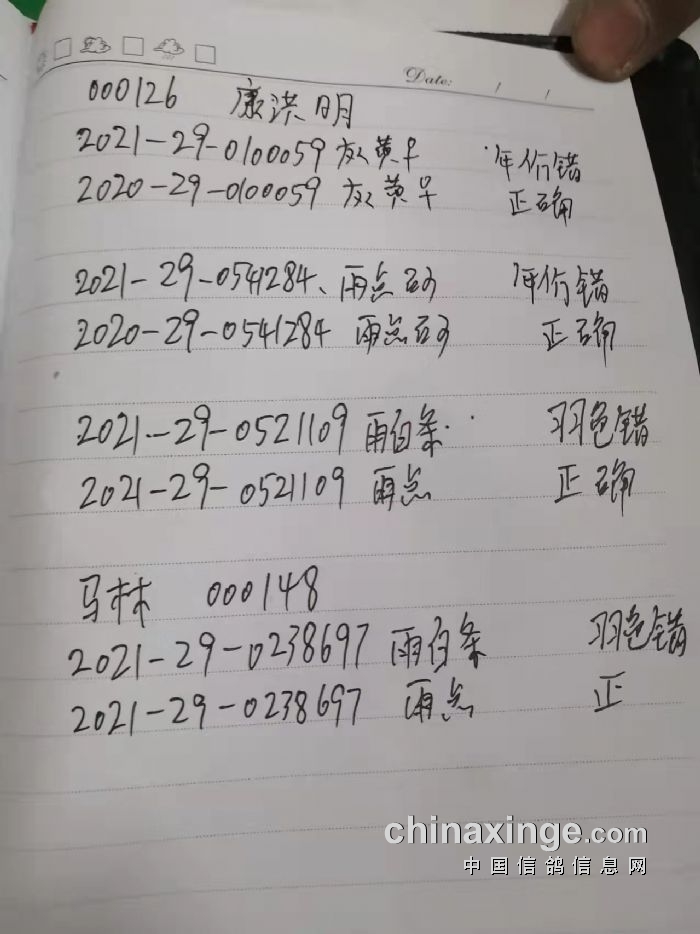 Date: / /
000126 康洪明
2021-29-0100059 灰黄早 年份错
2020-29-0100059 灰黄早 正确
2021-29-0541284、雨点 年份错
2020-29-0541284 雨点 正确
2021-29-0521109 雨白条 羽色错
2021-29-0521109 雨点 正确
马林 000148
2021-29-0238697 雨白条 羽色错
2021-29-0238697 雨点 正
chinaxinge.com
中国信鸽信息网